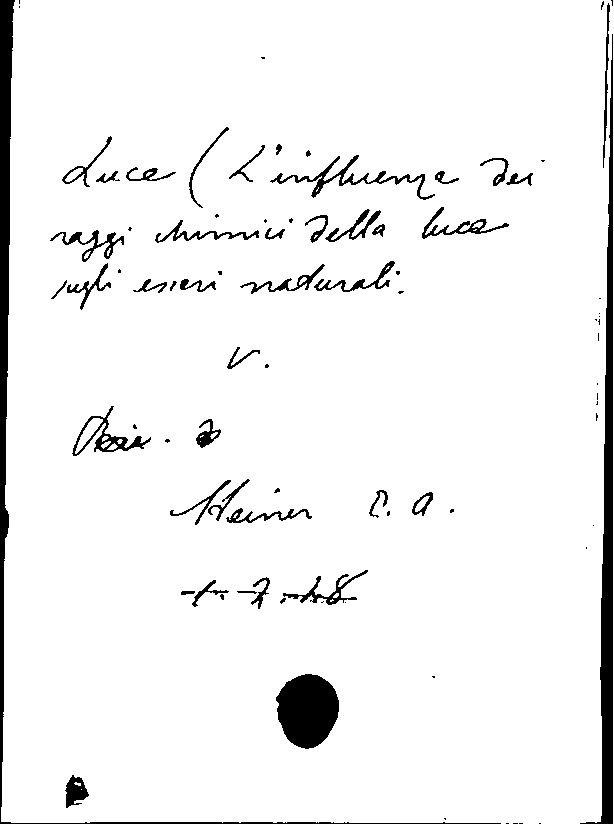 Luce (L'influenza dei
raggi chimici della luce
sugli esseri naturali.
V.
Steiner C. A.